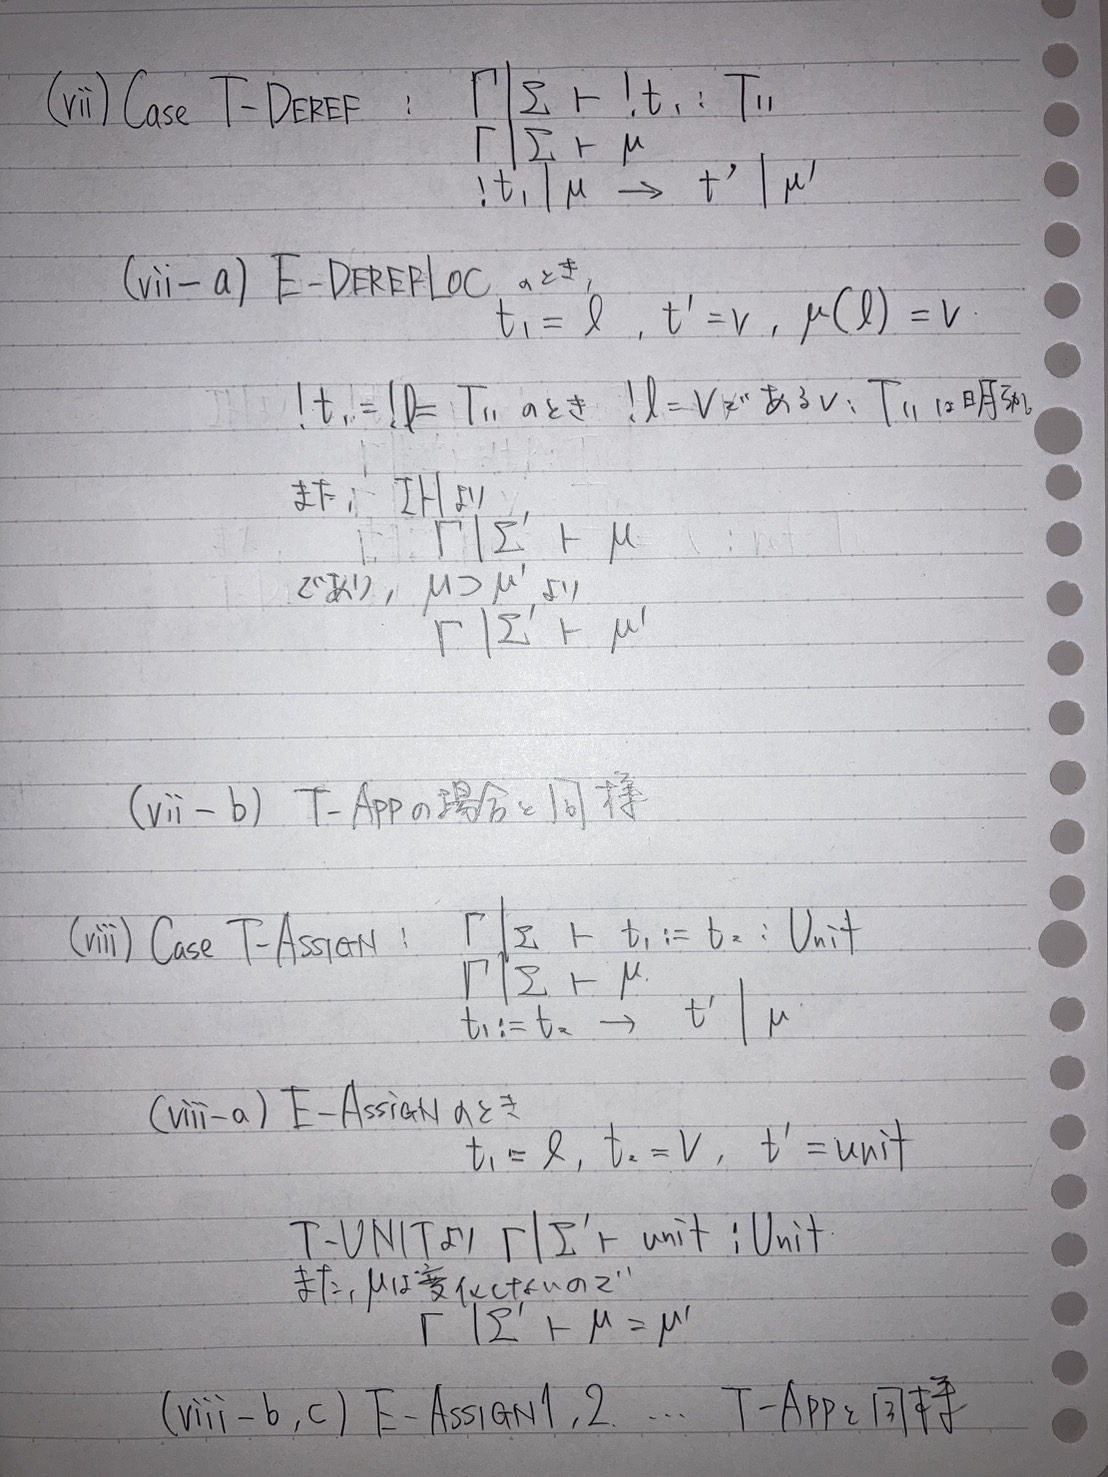 (vii) Case T-DEREF : Γ|Σ ⊢ !t₁ : T₁₁
Γ|Σ ⊢ μ
!t₁|μ → t'|μ'
(vii-a) E-DEREFLOC のとき,
t₁ = l , t' = v , μ(l) = v.
!t₁=!l= T₁₁ のとき !l=vである v : T₁₁ は明確。
また, IHより,
Γ|Σ' ⊢ μ
であり, μ⊃μ' より
Γ|Σ' ⊢ μ'
(vii-b) T-APPの場合と同様
(viii) Case T-ASSIGN : Γ|Σ ⊢ t₁:= t₂ : Unit
Γ|Σ ⊢ μ.
t₁:= t₂ → t'|μ
(viii-a) E-ASSIGNのとき
t₁ = l, t₂ = v, t' = unit
T-UNITより Γ|Σ' ⊢ unit : Unit.
また, μは変化しないので
Γ|Σ' ⊢ μ = μ'
(viii-b,c) E-ASSIGN1,2 ... T-APPと同様